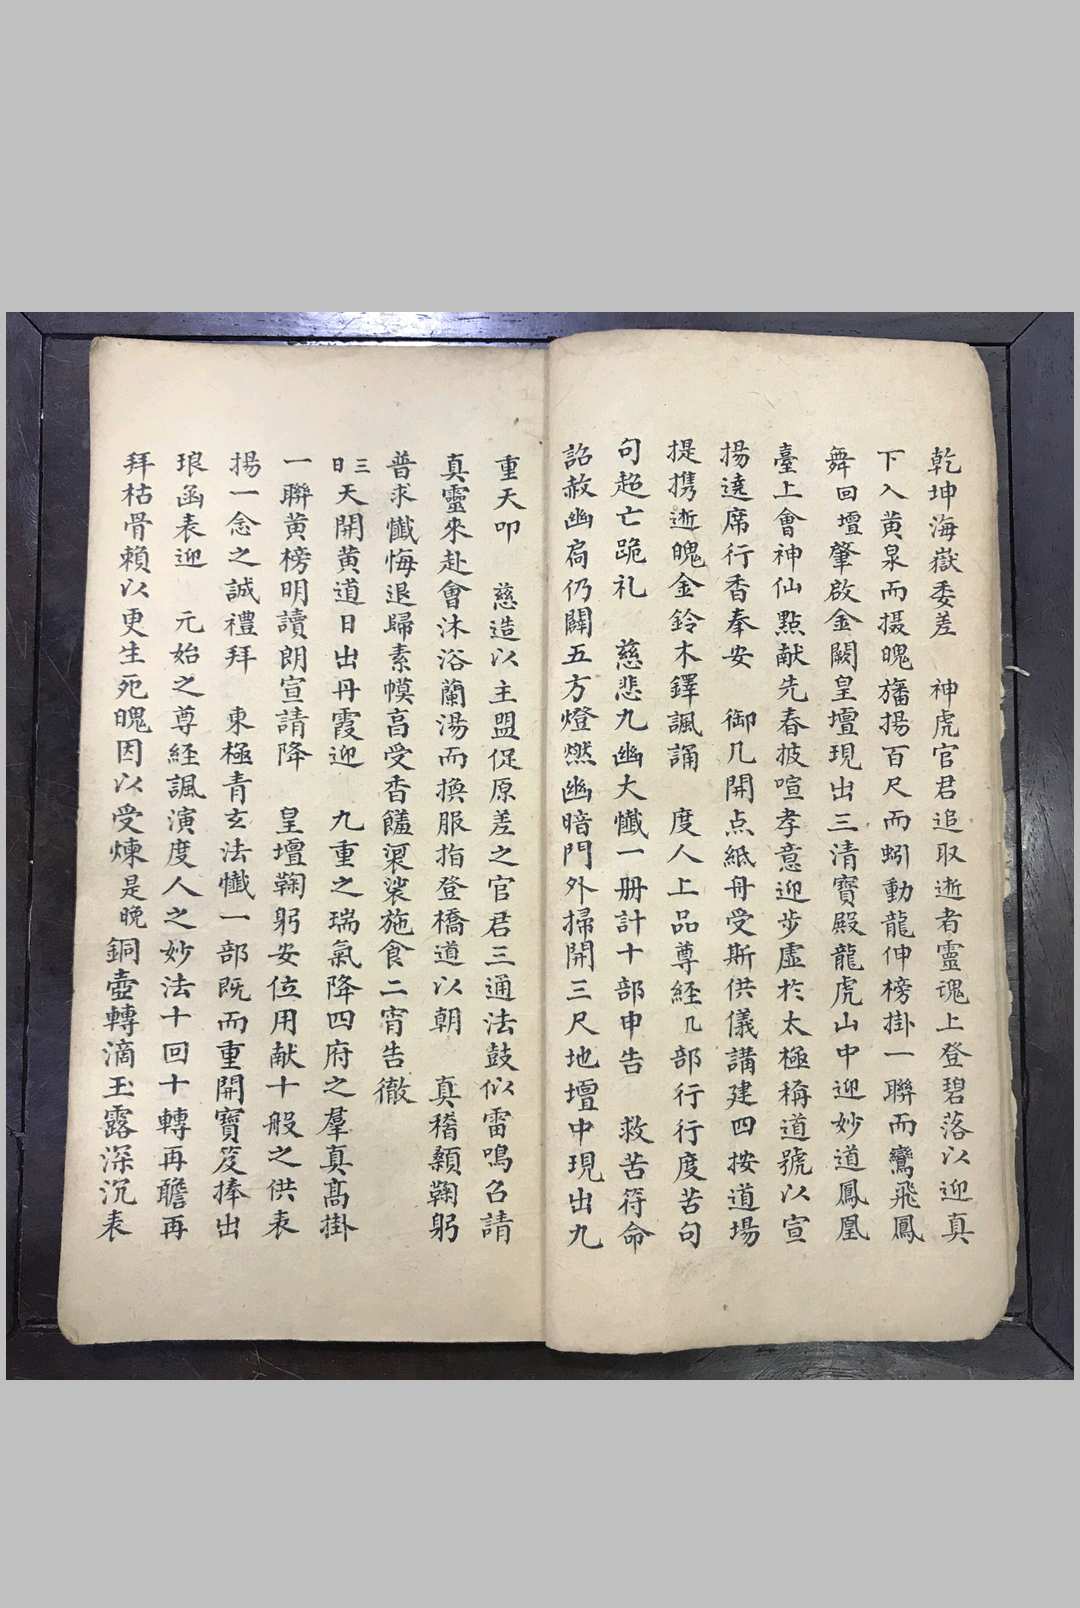 乾坤海嶽委差　神虎官君追取逝者靈魂上登碧落以迎真
下入黄泉而摄魄旛揚百尺而蚓動龍伸榜掛一聯而鸞飛鳳
舞回壇肇啟金闕皇壇現出三清寶殿龍虎山中迎妙道鳳凰
臺上會神仙點献先春披喧孝意迎步虚於太極稱道號以宣
揚遶席行香奉安　御几開点紙舟受斯供儀講建四按道場
提携逝魄金鈴木鐸諷誦　度人上品尊経几部行行度苦句
句超亡跪礼　慈悲九幽大懺一册計十部申告　救苦符命
詔赦幽扃仍闢五方燈燃幽暗門外掃開三尺地壇中現出九
重天叩　慈造以主盟促原差之官君三通法鼓似雷鳴召請
真靈來赴會沐浴蘭湯而换服指登橋道以朝　真稽顙鞠躬
普求懺悔退歸素幙享受香饈梁裟施食二宵告徹
三日天開黄道日出丹霞迎　九重之瑞氣降四府之羣真髙掛
一聯黄榜明讀朗宣請降　皇壇鞠躬安位用献十般之供表
揚一念之誠禮拜　東極青玄法懺一部既而重開寶笈捧出
琅函表迎　元始之尊経諷演度人之妙法十回十轉再瞻再
拜枯骨賴以更生死魄因以受煉是晚銅壺轉滴玉露深沉表